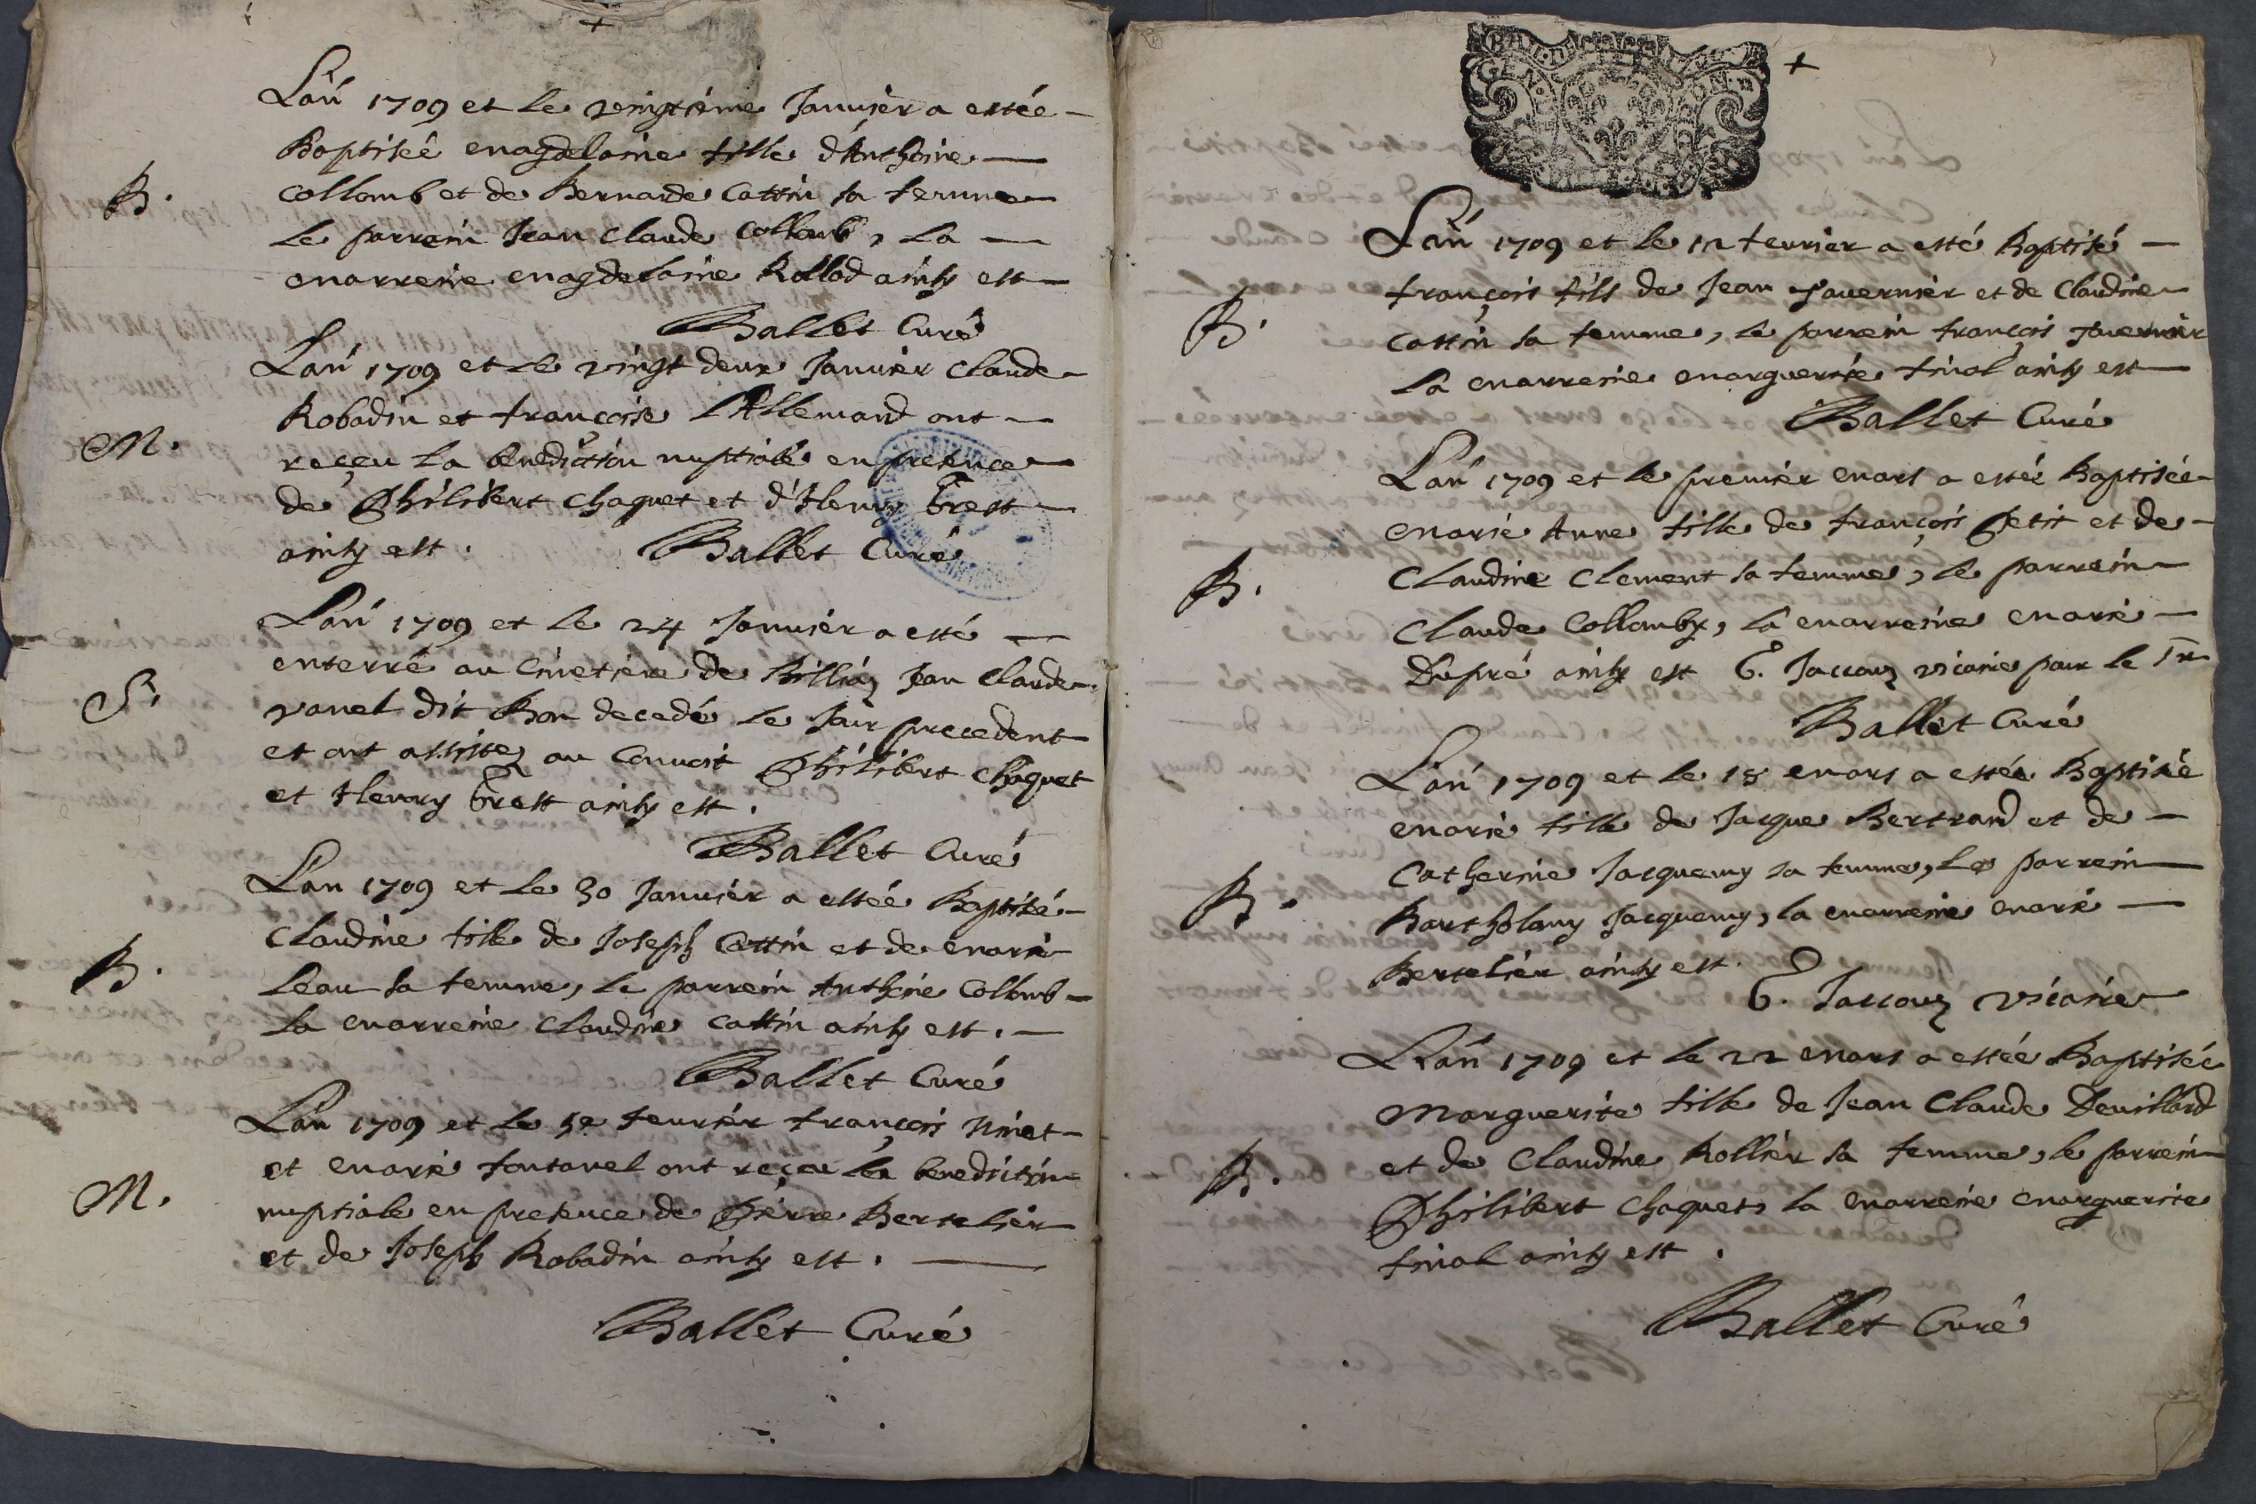 L'an 1709 et le vingtième Januier a estée
Baptisée magdelaine fille d'Anthoine
B.
Collomb et de Bernarde Cattin sa femme
le parrain Jean Claude Collomb, la
marreine magdelaine Rollod ainsy est
Ballet Curé
L'an 1709 et le vingt deux Januier Claude
Robadin et françoise l'Allemand ont
M.
reçeu la benediction nuptiale en presence
de Philibert Chaquet et d'Henry Brest
ainsy est. Ballet Curé
L'an 1709 et le 24 Januier a esté
enterré au Cimetiere de Billiaz Jean Claude
S.
vanel dit Bon decedé le Jour precedent
et ont assistez au Conuoit Philibert Chaquet
et Henry Brest ainsy est.
Ballet Curé
L'an 1709 et le 30 Januier a estée Baptisée
Claudine fille de Joseph Cattin et de marie
B.
leau sa femme, le parrein Anthoine Collomb
la marreine Claudine Cattin ainsy est.
Ballet Curé
L'an 1709 et le 5e feurier françois Ninet
et marie fontanel ont reçeu la benediction
M.
nuptiale en presence de Pierre Bertelier
et de Joseph Robadin ainsy est.
Ballet Curé
BRE.
GEN. ION.
L'an 1709 et le 12 feurier a esté Baptisé
françois fils de Jean Tauernier et de Claudine
B.
Cattin sa femme, le parrein françois Tauernier
la marreine marguerite finol ainsy est
Ballet Curé
L'an 1709 et le premier mars a estée Baptisée
marie Anne fille de françois Petit et de
B.
Claudine Clement sa femme, le parrein
Claude Collomby, la marreine marie
Dupré ainsy est C. Jaccouz vicaire pour le Sr
Ballet Curé
L'an 1709 et le 18 mars a estée Baptisée
marie fille de Jacque Bertrand et de
Catherine Jacquemy sa femme, le parrein
B.
Bartholamy Jacquemy, la marreine marie
Bertelier ainsy est.
C. Jaccouz vicaire
L'an 1709 et le 22 mars a estée Baptisée
Marguerite fille de Jean Claude Deuillard
B.
et de Claudine Rollier sa femme, le parrein
Philibert Chaquet, la marreine marguerite
finol ainsy est.
Ballet Curé